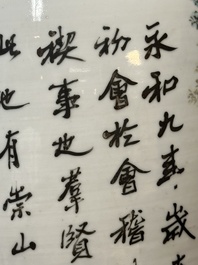 永和九年歲
初會於會稽
禊事也羣賢
此也有崇山